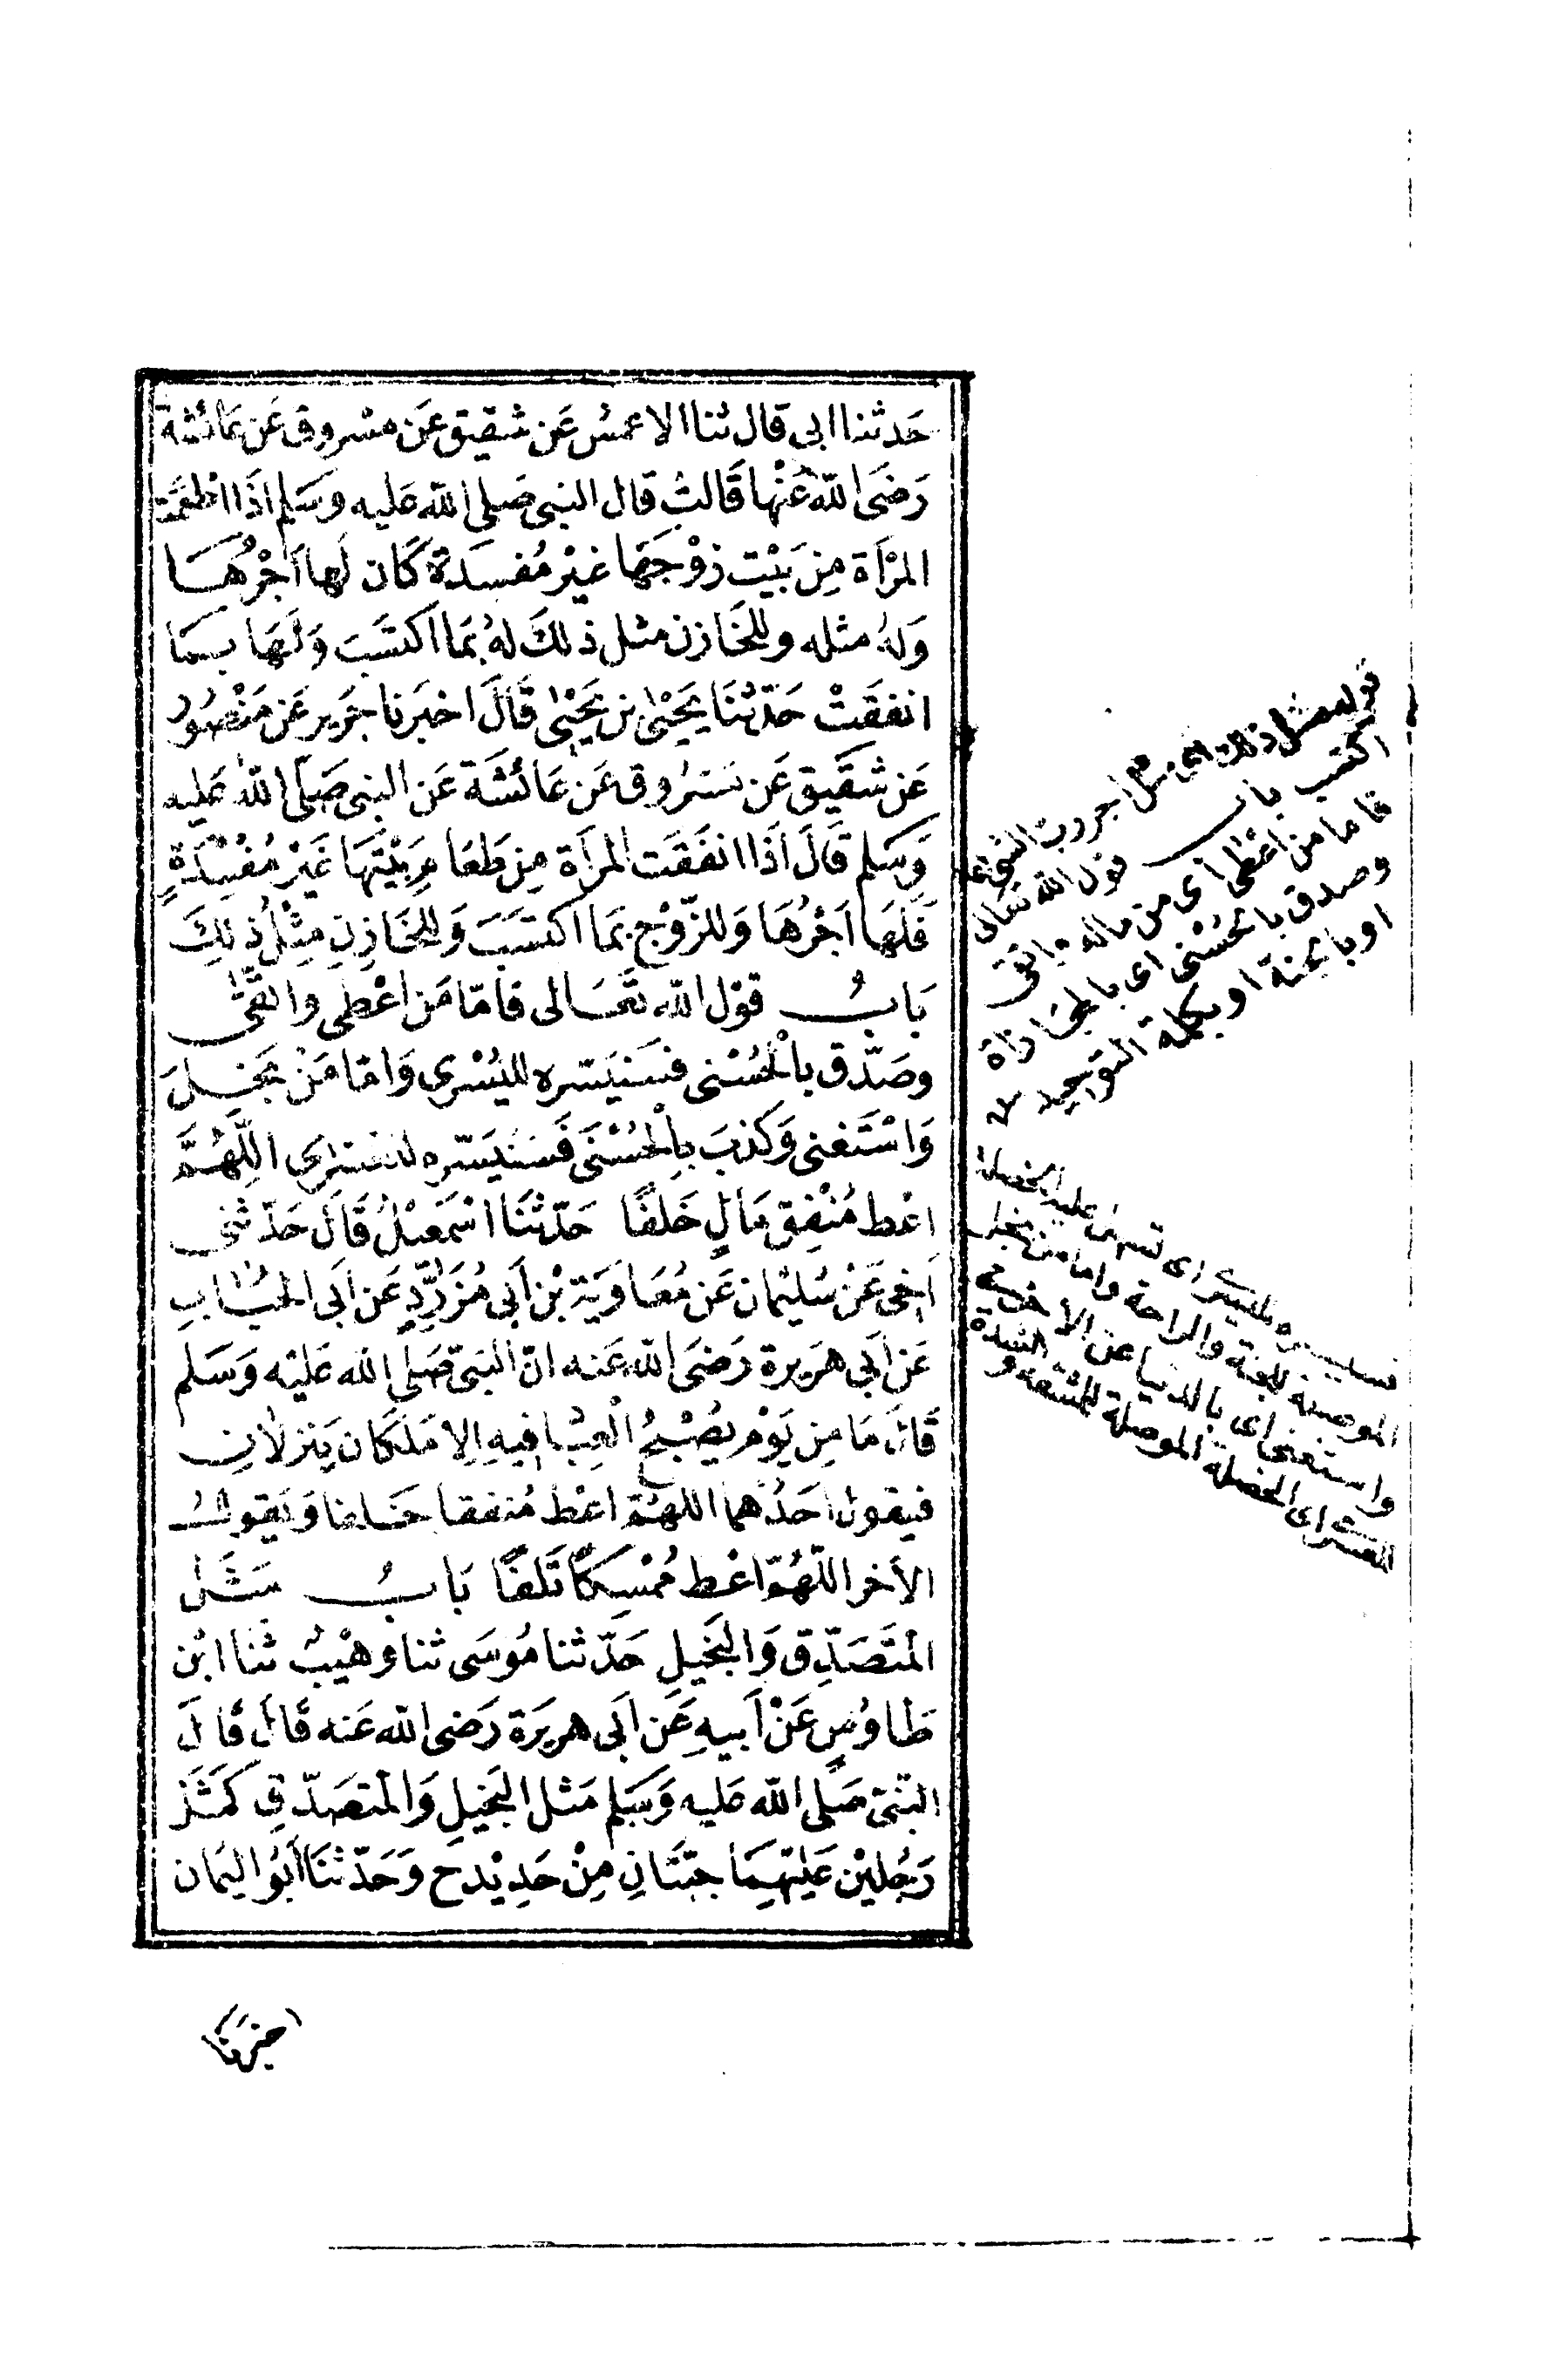 حَدثنا ابى قال ثنا الاعمش عَن شقيق عَن مسروق عَن عَائشة
رَضىَ الله عَنْها قَالتْ قال النبى صَلى الله عَليه وسَلم اذَا اطعمَت
المرْأَة مِن بَيْت زوْجهَا غيْر مُفسدَة كَان لَها اَجْرُهَا
وَلهُ مثله وللخَازن مثل ذلكَ لهُ بمَا اكتسَبَ وَلَهَا بما
انفقَتْ حَدّثنَا يَحْيىٰ بن يَحْيىٰ قَالَ اخبَرنا جَرير عَن مَنْصُور
عَن شَقيق عَن مَسْرُوق عَن عَائشَة عَن النبى صَلى اللهُ عَليه
وَسَلم قَالَ اذَا انفَقَت المرأَة مِن طَعَام بَيْتهَا غَيْر مُفْسدَةٍ
فَلَهَا اَجْرُهَا وَللزّوْج بمَا اكتسَبَ وَللخَازنِ مِثْلُ ذلِكَ
بَابُ قوْل الله تعَالى فامّا مَن اعْطى واتّقَى
وصَدّق بالْحُسْنى فسَنيَسّره لليُسْرى وَامّا مَنْ بَخلَ
وَاسْتَغنى وَكذبَ بالْحُسْنَى فَسَنُيَسّره للعسْرى اللّهُمَّ
اعْط مُنْفِق مَالٍ خَلفًا حَدّثنَا اسْمَعيْلُ قَالَ حَدّثنى
اَخى عَنْ سُليْمان عَن مُعَاويَة بْن اَبى مُزَرّدٍ عَن اَبى الحُبَابِ
عَن اَبى هرَيرة رَضىَ الله عَنه انّ النبىّ صَلى الله عَليْه وَسَلم
قَالَ مَا مِن يَوْم يصُبْحُ الْعِبَا فيهِ الا مَلكَان يَنزلانِ
فيقول اَحَدُهما اللهُمّ اعْط مُنفقا خَلفا وَيَقول
الأخر اللّهُمّ اعْط مُمْسِكًا تَلَفًا بَابُ مَثَل
المتَصَدّق وَالبَخيل حَدّثنا مُوسَى ثنا وهَيْبٌ ثنَا ابْن
طَاوُسٍ عَنْ اَبيهِ عَن اَبى هريرَة رَضى الله عَنه قَالَ قَالَ
النبىّ صَلى الله عَليه وَسَلم مَثل البَخيلِ وَالمتصَدّقِ كمَثَل
رَجُليْن عَليْهِمَا جبّتَانِ مِنْ حَديْد ح وَحَدّثنَا اَبُو اليَمان
اخبرنا
قوله مثل ذلك اى مثل اجر
اكتسب باب قول الله تعالى
فاما من اعْطى اى من ماله واتقى
وصدق بالحُسْنى اى بالمجَازاة
او بالجنة او بكلمة التوحيد
فسنيسره لليسرى اى
الموصلة للجنة والراحة واما من بخل
واستغنى اى بالدنيا عن الاخرى
للعسرى اى الخصلة الموصلة للمشقة و الشدة